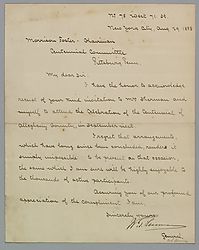 No 75 West 71 St.
New York City Aug 29, 1888
Morrison Foster - Chairman
Centennial Committee
Pittsburg Penn.
My dear Sir.
I have the honor to acknowledge
receipt of your kind invitations to Mrs Sherman and
myself to attend the Celebration of the Centennial of
Allegheny County, in September next.
I regret that arrangements,
which have long since been concluded, render it
simply impossible to be present on that occasion,
the same which I am sure will be highly enjoyable to
the thousands of active participants.
Assuring you of our profound
appreciation of the compliment I am,
Sincerely yours
W. T. Sherman
General